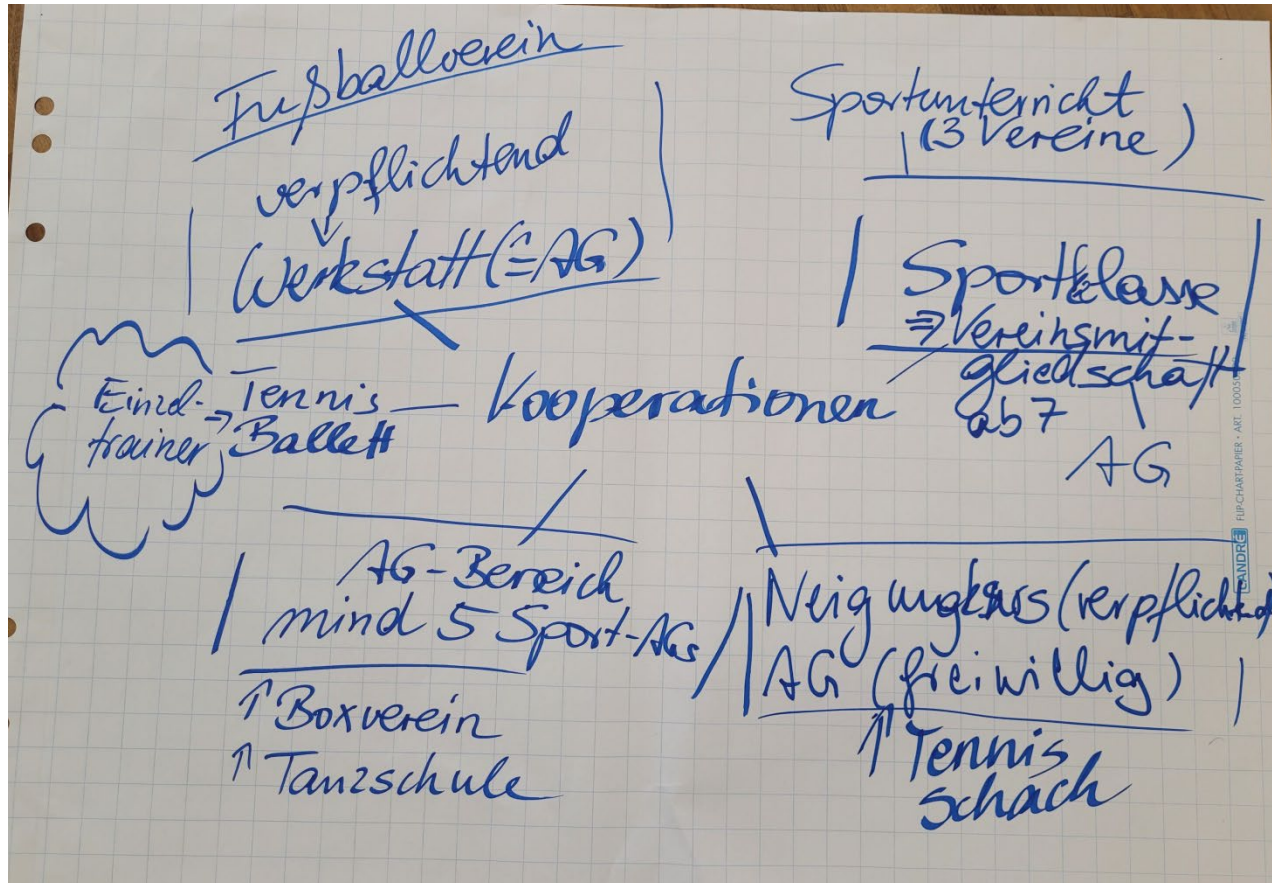 Fußballverein
verpflichtend
Werkstatt (≙AG)
Sportunterricht
(3 Vereine)
Sportklasse
⇒ Vereinsmit-
gliedschaft
ab 7
AG
Einzel-
trainer ⇒
Tennis
Ballett
Kooperationen
AG-Bereich
mind 5 Sport-AGs
↑ Boxverein
↑ Tanzschule
Neigungskurs (verpflichtend)
AG (freiwillig)
⇑ Tennis
Schach
LANDRÉ FLIP-CHART-PAPIER • ART. 10005